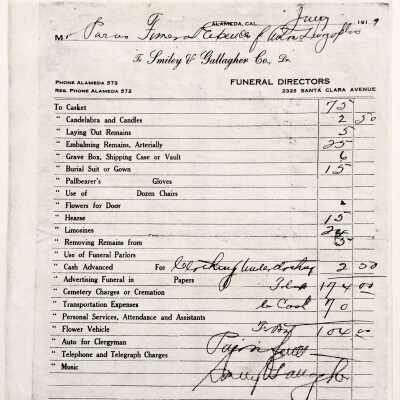 ALAMEDA, CAL. June 191 9
M
To Smiley & Gallagher Co., Dr.
PHONE ALAMEDA 573
RES. PHONE ALAMEDA 572
FUNERAL DIRECTORS
2325 SANTA CLARA AVENUE
To Casket 75
" Candelabra and Candles 2 50
" Laying Out Remains 5
" Embalming Remains, Arterially 25
" Grave Box, Shipping Case or Vault 6
" Burial Suit or Gown 15
" Pallbearer's Gloves
" Use of Dozen Chairs
" Flowers for Door
" Hearse 15
" Limosines
" Removing Remains from 5
" Use of Funeral Parlors
" Cash Advanced For 2 50
" Advertising Funeral in Papers Total 174 00
" Cemetery Charges or Cremation
" Transportation Expenses by Cash 70
" Personal Services, Attendance and Assistants
" Flower Vehicle 104 00
" Auto for Clergyman
" Telephone and Telegraph Charges
" Music